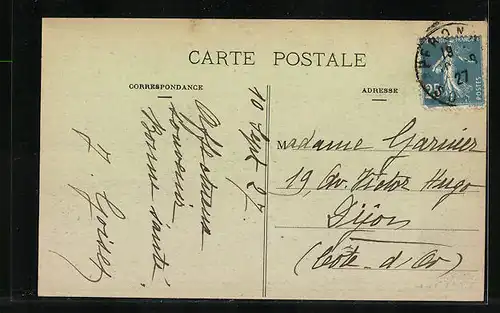 CARTE POSTALE
CORRESPONDANCE
ADRESSE
10 Sept 27.
Affectueux
souvenir
Bonne santé
J.
Madame Garnier
19, Av. Victor Hugo
Dijon
(Côte-d'Or)
PERONN
19
27
25
POSTES